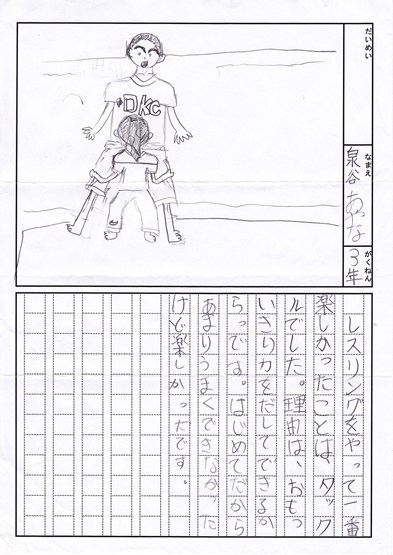 だいめい
なまえ
泉谷
がくねん
3年
DKC
レスリングをやって一番
楽しかったことは、タック
ルでした。理由は、おもっ
いきり力をだしてできるか
らっです。はじめてだから
あまりうまくできなかった
けど楽しかったです。